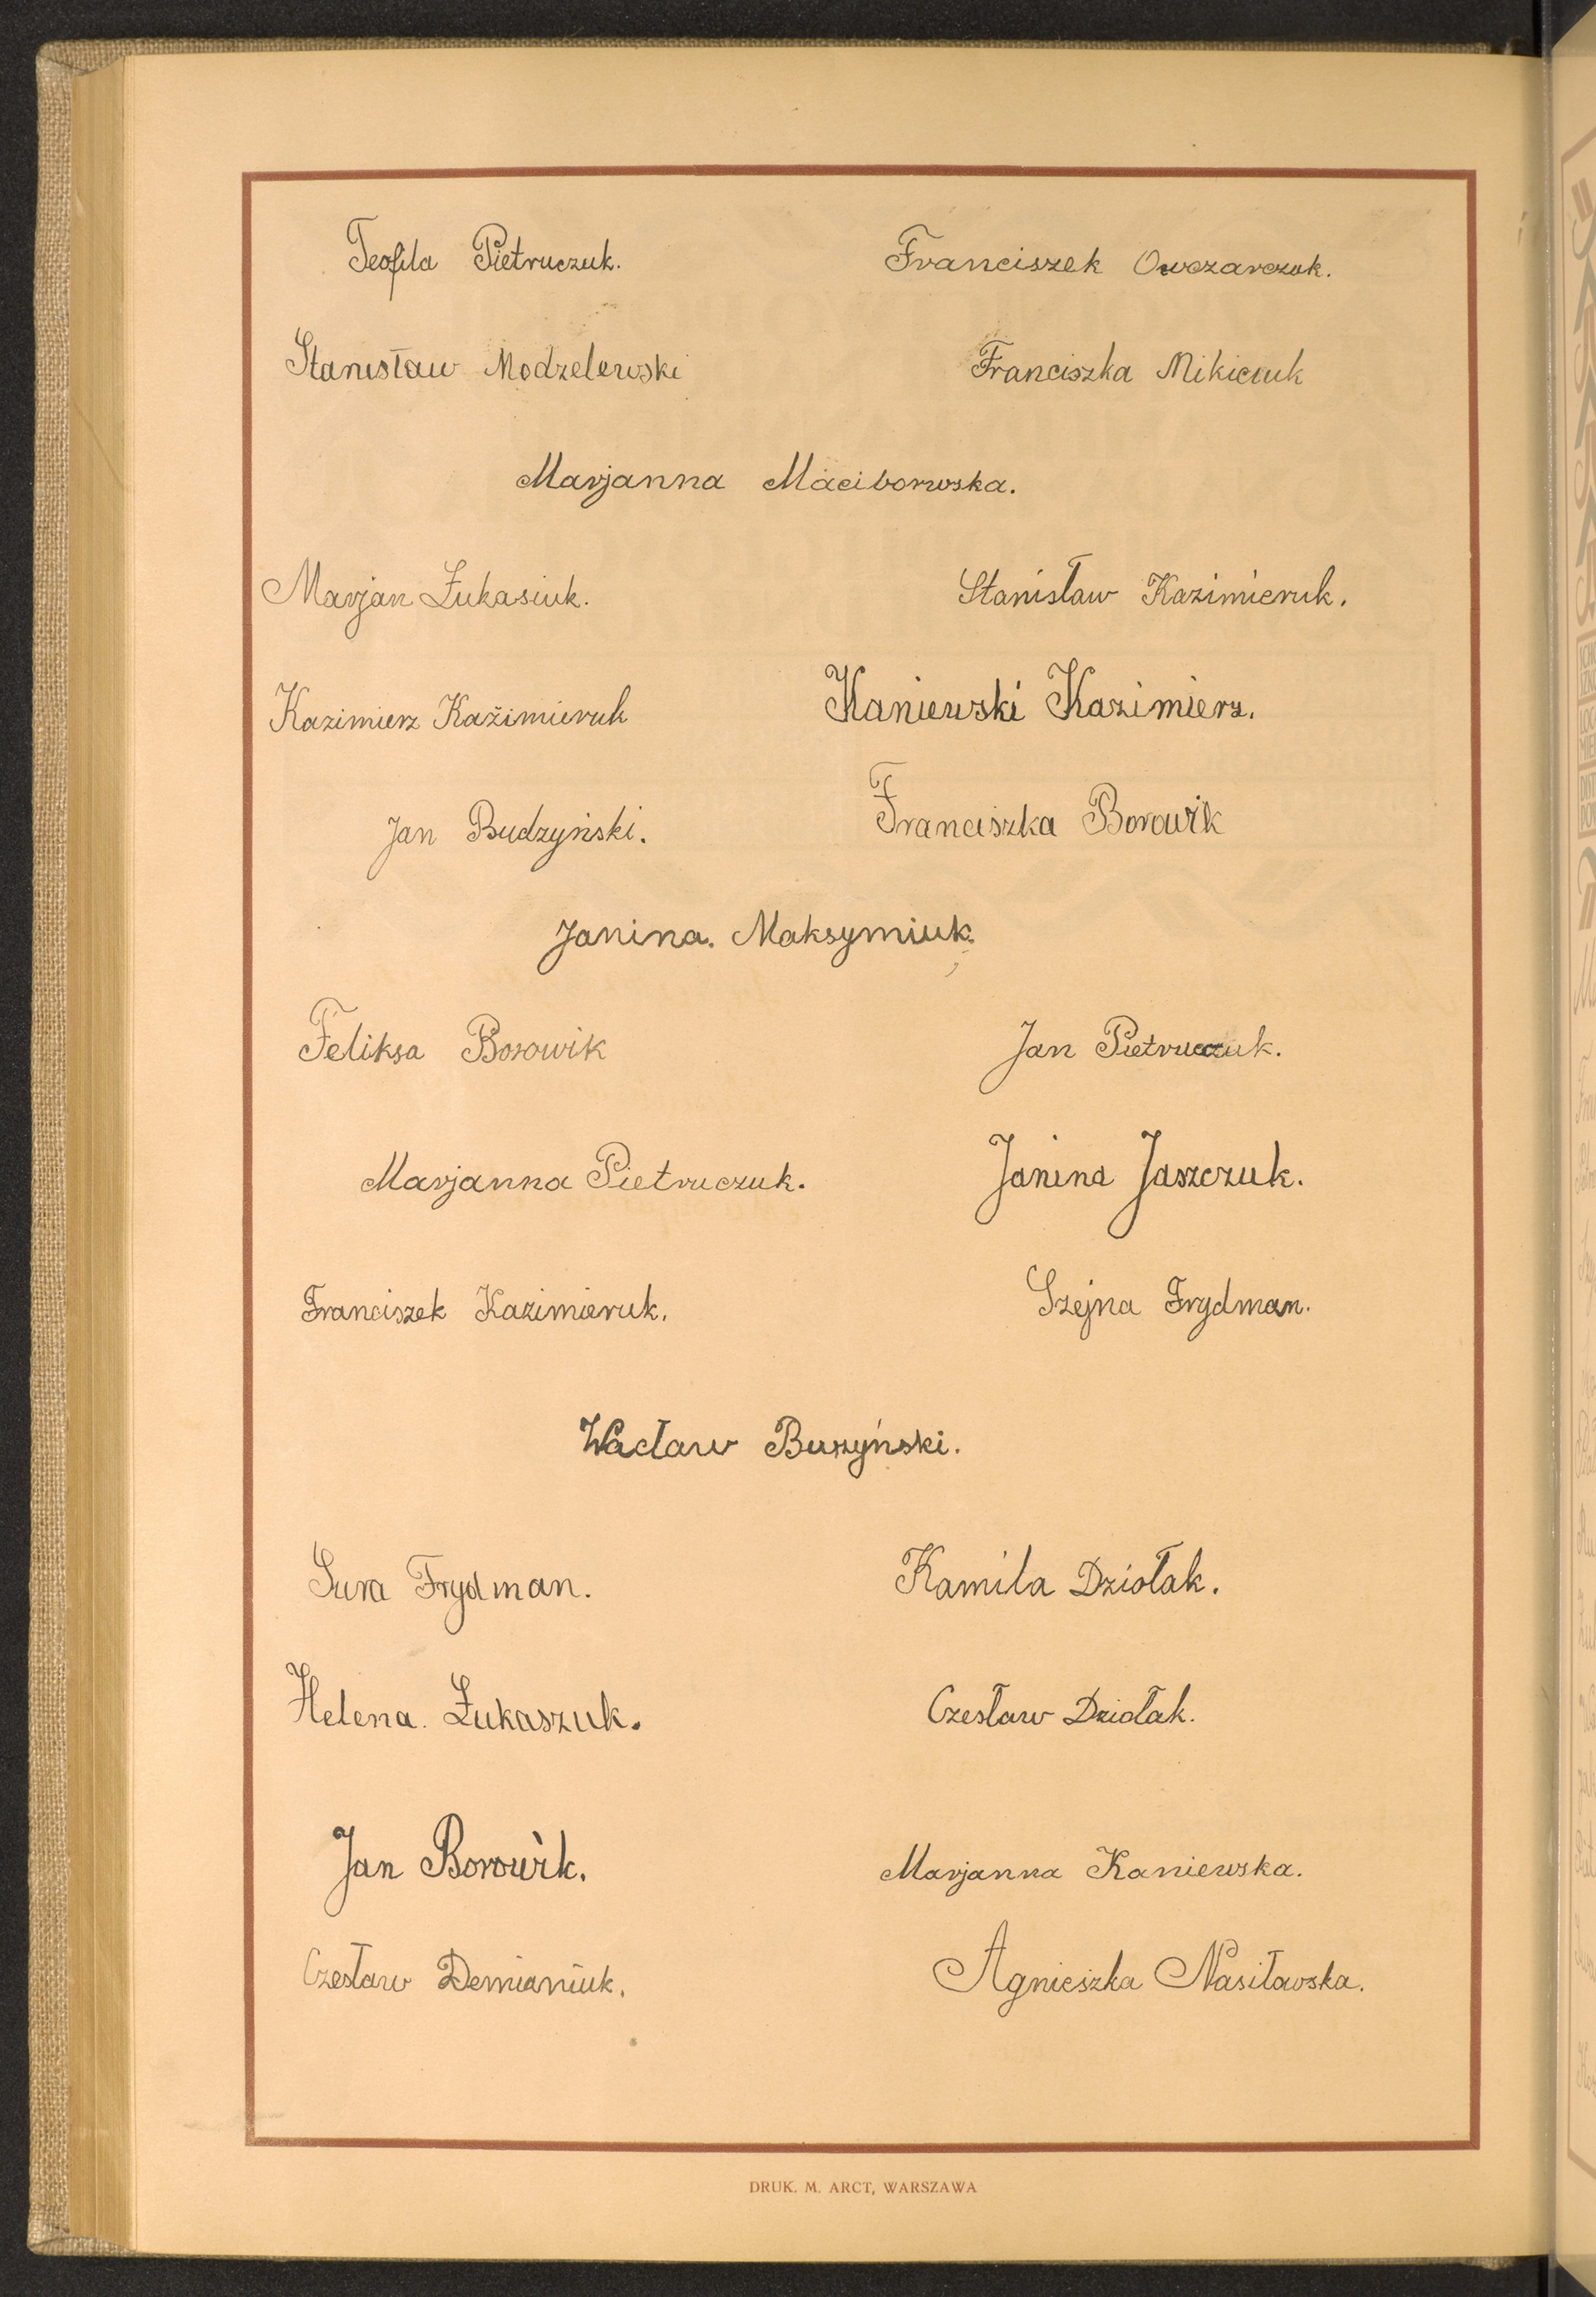 Teofila Pietruczuk. Franciszek Owczarczuk.
Stanisław Modzelewski Franciszka Mikiciuk
Marjanna Maciborwska.
Marjan Łukasiuk. Stanisław Kazimieruk.
Kazimierz Kazimieruk Kaniewski Kazimierz.
Jan Budzyński. Franciszka Borowik
Janina. Maksymiuk.
Feliksa Borowik Jan Pietruczuk.
Marjanna Pietruczuk. Janina Jaszczuk.
Franciszek Kazimieruk. Szejna Frydman.
Wacław Buzyński.
Sura Frydman. Kamila Dziołak.
Helena. Łukaszuk. Czesław Dziołak.
Jan Borowik. Marjanna Kaniewska.
Czesław Demianiuk. Agnieszka Nasiławska.
DRUK. M. ARCT, WARSZAWA